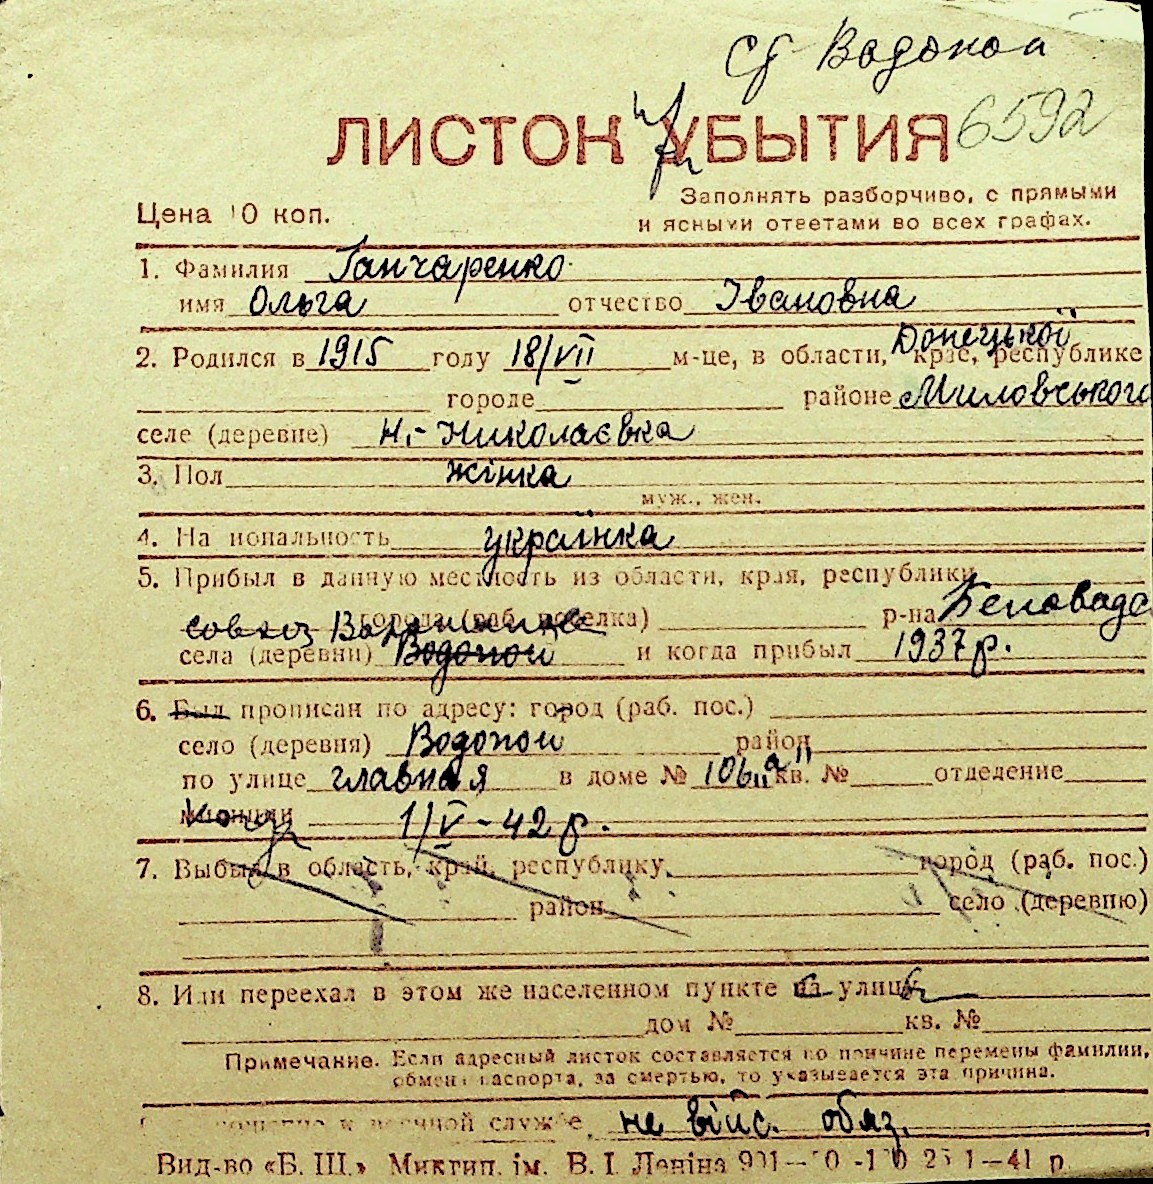 Водопоя
ЛИСТОК УБЫТИЯ 6592
Заполнять разборчиво, с прямыми
Цена 10 коп. и ясными ответами во всех графах.
1. Фамилия Ганчаренко
имя Ольга отчество Івановна
2. Родился в 1915 году 18/VII м-це, в области, Донецькой крае, республике
городе районе Миловського
селе (деревне) Н.-Николаєвка
3. Пол жінка
муж., жен.
4. Национальность українка
5. Прибыл в данную местность из области, края, республики
совхоз города (раб. поселка) р-на
села (деревни) Водопой и когда прибыл 1937 р.
6. Был прописан по адресу: город (раб. пос.)
село (деревня) Водопой район
по улице главная в доме № 106 "а" кв. № отделение
1/V-42 р.
7. Выбыл в область, край, республику город (раб. пос.)
район село (деревню)
8. Или переехал в этом же населенном пункте на улицу
дом № кв. №
Примечание. Если адресный листок составляется по причине перемены фамилии,
обмена паспорта, за смертью, то указывается эта причина.
отношение к военной службе не війс. обяз.
Вид-во «Б. Ш.» Миктип. ім. В. І. Леніна